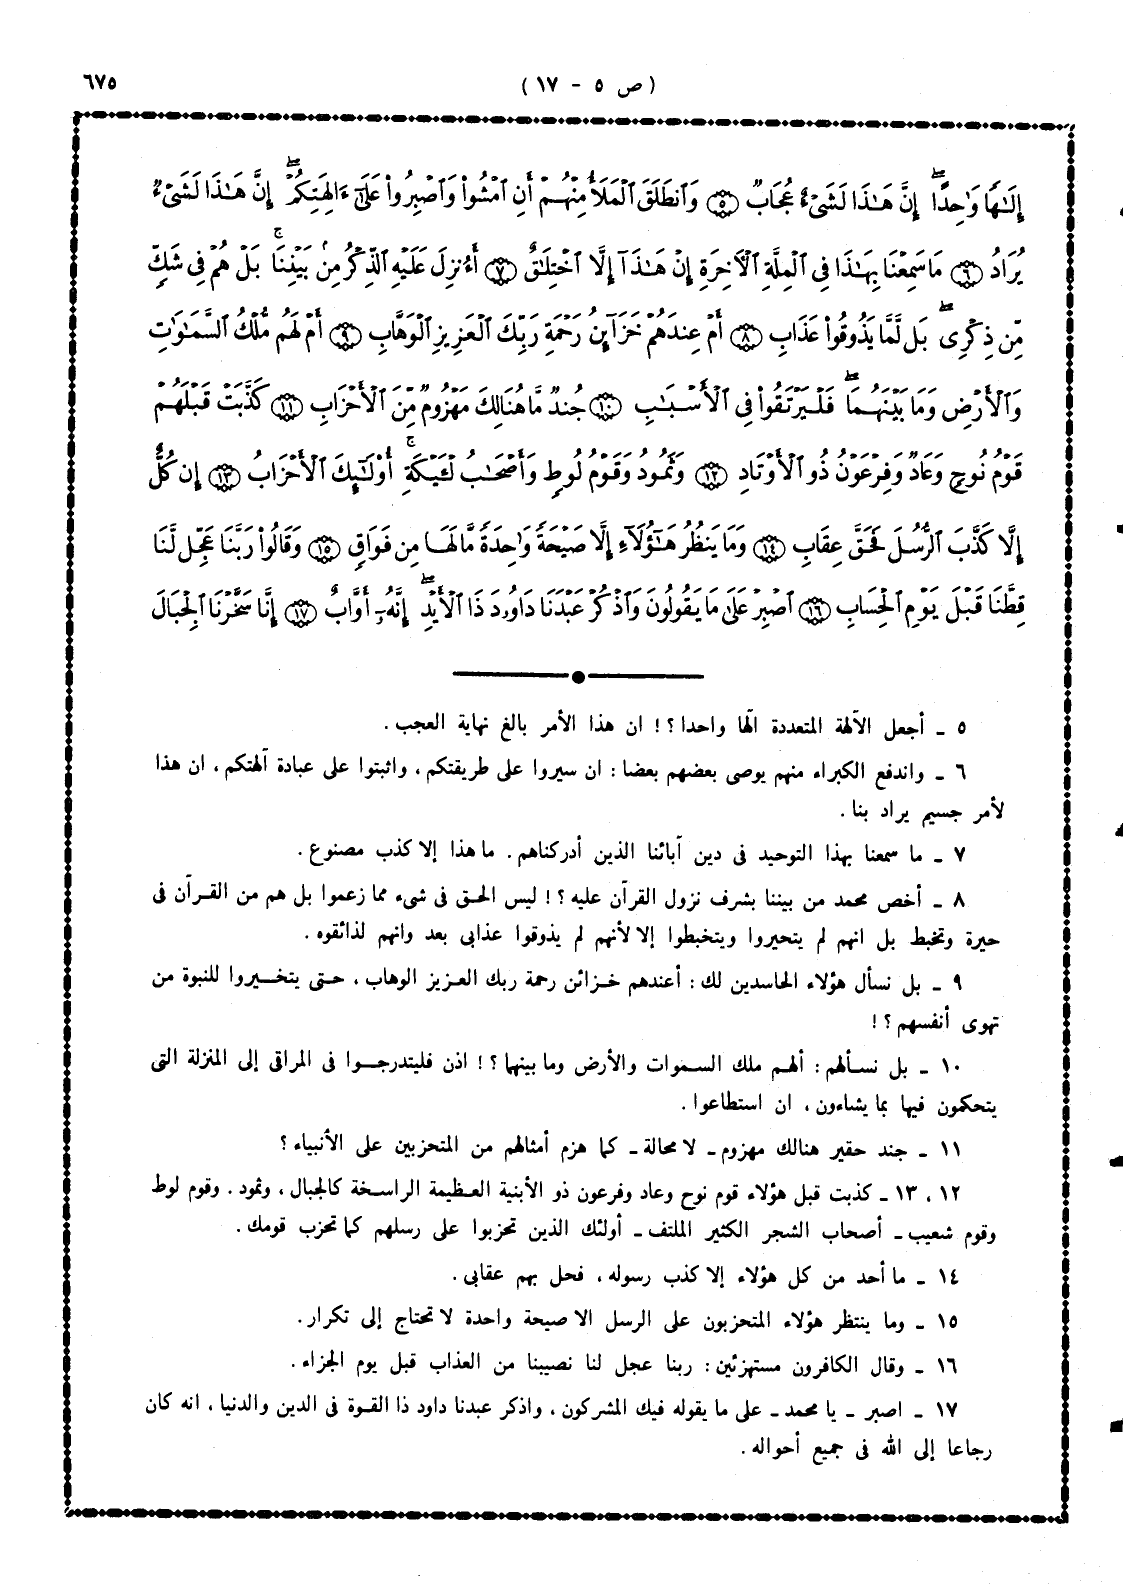 ٦٧٥
( ص ٥ – ١٧ )
إِلَٰهًا وَٰحِدًا ۖ إِنَّ هَٰذَا لَشَىْءٌ عُجَابٌ ٥ وَٱنطَلَقَ ٱلْمَلَأُ مِنْهُمْ أَنِ ٱمْشُوا۟ وَٱصْبِرُوا۟ عَلَىٰٓ ءَالِهَتِكُمْ ۖ إِنَّ هَٰذَا لَشَىْءٌ
يُرَادُ ٦ مَا سَمِعْنَا بِهَٰذَا فِى ٱلْمِلَّةِ ٱلْءَاخِرَةِ إِنْ هَٰذَآ إِلَّا ٱخْتِلَٰقٌ ٧ أَءُنزِلَ عَلَيْهِ ٱلذِّكْرُ مِنۢ بَيْنِنَا ۚ بَلْ هُمْ فِى شَكٍّ
مِّن ذِكْرِى ۖ بَل لَّمَّا يَذُوقُوا۟ عَذَابِ ٨ أَمْ عِندَهُمْ خَزَآئِنُ رَحْمَةِ رَبِّكَ ٱلْعَزِيزِ ٱلْوَهَّابِ ٩ أَمْ لَهُم مُّلْكُ ٱلسَّمَٰوَٰتِ
وَٱلْأَرْضِ وَمَا بَيْنَهُمَا ۖ فَلْيَرْتَقُوا۟ فِى ٱلْأَسْبَٰبِ ١٠ جُندٌ مَّا هُنَالِكَ مَهْزُومٌ مِّنَ ٱلْأَحْزَابِ ١١ كَذَّبَتْ قَبْلَهُمْ
قَوْمُ نُوحٍ وَعَادٌ وَفِرْعَوْنُ ذُو ٱلْأَوْتَادِ ١٢ وَثَمُودُ وَقَوْمُ لُوطٍ وَأَصْحَٰبُ لْـَٔيْكَةِ ۚ أُو۟لَٰٓئِكَ ٱلْأَحْزَابُ ١٣ إِن كُلٌّ
إِلَّا كَذَّبَ ٱلرُّسُلَ فَحَقَّ عِقَابِ ١٤ وَمَا يَنظُرُ هَٰٓؤُلَآءِ إِلَّا صَيْحَةً وَٰحِدَةً مَّا لَهَا مِن فَوَاقٍ ١٥ وَقَالُوا۟ رَبَّنَا عَجِّل لَّنَا
قِطَّنَا قَبْلَ يَوْمِ ٱلْحِسَابِ ١٦ ٱصْبِرْ عَلَىٰ مَا يَقُولُونَ وَٱذْكُرْ عَبْدَنَا دَاوُۥدَ ذَا ٱلْأَيْدِ ۖ إِنَّهُۥٓ أَوَّابٌ ١٧ إِنَّا سَخَّرْنَا ٱلْجِبَالَ
٥ – أجعل الآلهة المتعددة الٓها واحدا؟! ان هذا الأمر بالغ نهاية العجب.
٦ – واندفع الكبراء منهم يوصى بعضهم بعضا: ان سيروا على طريقتكم، واثبتوا على عبادة آلهتكم، ان هذا
لأمر جسيم يراد بنا.
٧ – ما سمعنا بهذا التوحيد فى دين آبائنا الذين أدركناهم. ما هذا إلا كذب مصنوع.
٨ – أخص محمد من بيننا بشرف نزول القرآن عليه؟! ليس الحق فى شىء مما زعموا بل هم من القرآن فى
حيرة وتخبط بل انهم لم يتحيروا ويتخبطوا إلا لأنهم لم يذوقوا عذابى بعد وانهم لذائقوه.
٩ – بل نسأل هؤلاء الحاسدين لك: أعندهم خزائن رحمة ربك العزيز الوهاب، حتى يتخيروا للنبوة من
تهوى أنفسهم؟!
١٠ – بل نسألهم: ألهم ملك السموات والأرض وما بينهما؟! اذن فليتدرجوا فى المراقى إلى المنزلة التى
يتحكمون فيها بما يشاءون، ان استطاعوا.
١١ – جند حقير هنالك مهزوم – لا محالة – كما هزم أمثالهم من المتحزبين على الأنبياء؟
١٢، ١٣ – كذبت قبل هؤلاء قوم نوح وعاد وفرعون ذو الأبنية العظيمة الراسخة كالجبال، وثمود. وقوم لوط
وقوم شعيب – أصحاب الشجر الكثير الملتف – أولئك الذين تحزبوا على رسلهم كما تحزب قومك.
١٤ – ما أحد من كل هؤلاء إلا كذب رسوله، فحل بهم عقابى.
١٥ – وما ينتظر هؤلاء المتحزبون على الرسل الا صيحة واحدة لا تحتاج إلى تكرار.
١٦ – وقال الكافرون مستهزئين: ربنا عجل لنا نصيبنا من العذاب قبل يوم الجزاء.
١٧ – اصبر – يا محمد – على ما يقوله فيك المشركون، واذكر عبدنا داود ذا القوة فى الدين والدنيا، انه كان
رجاعا إلى الله فى جميع أحواله.